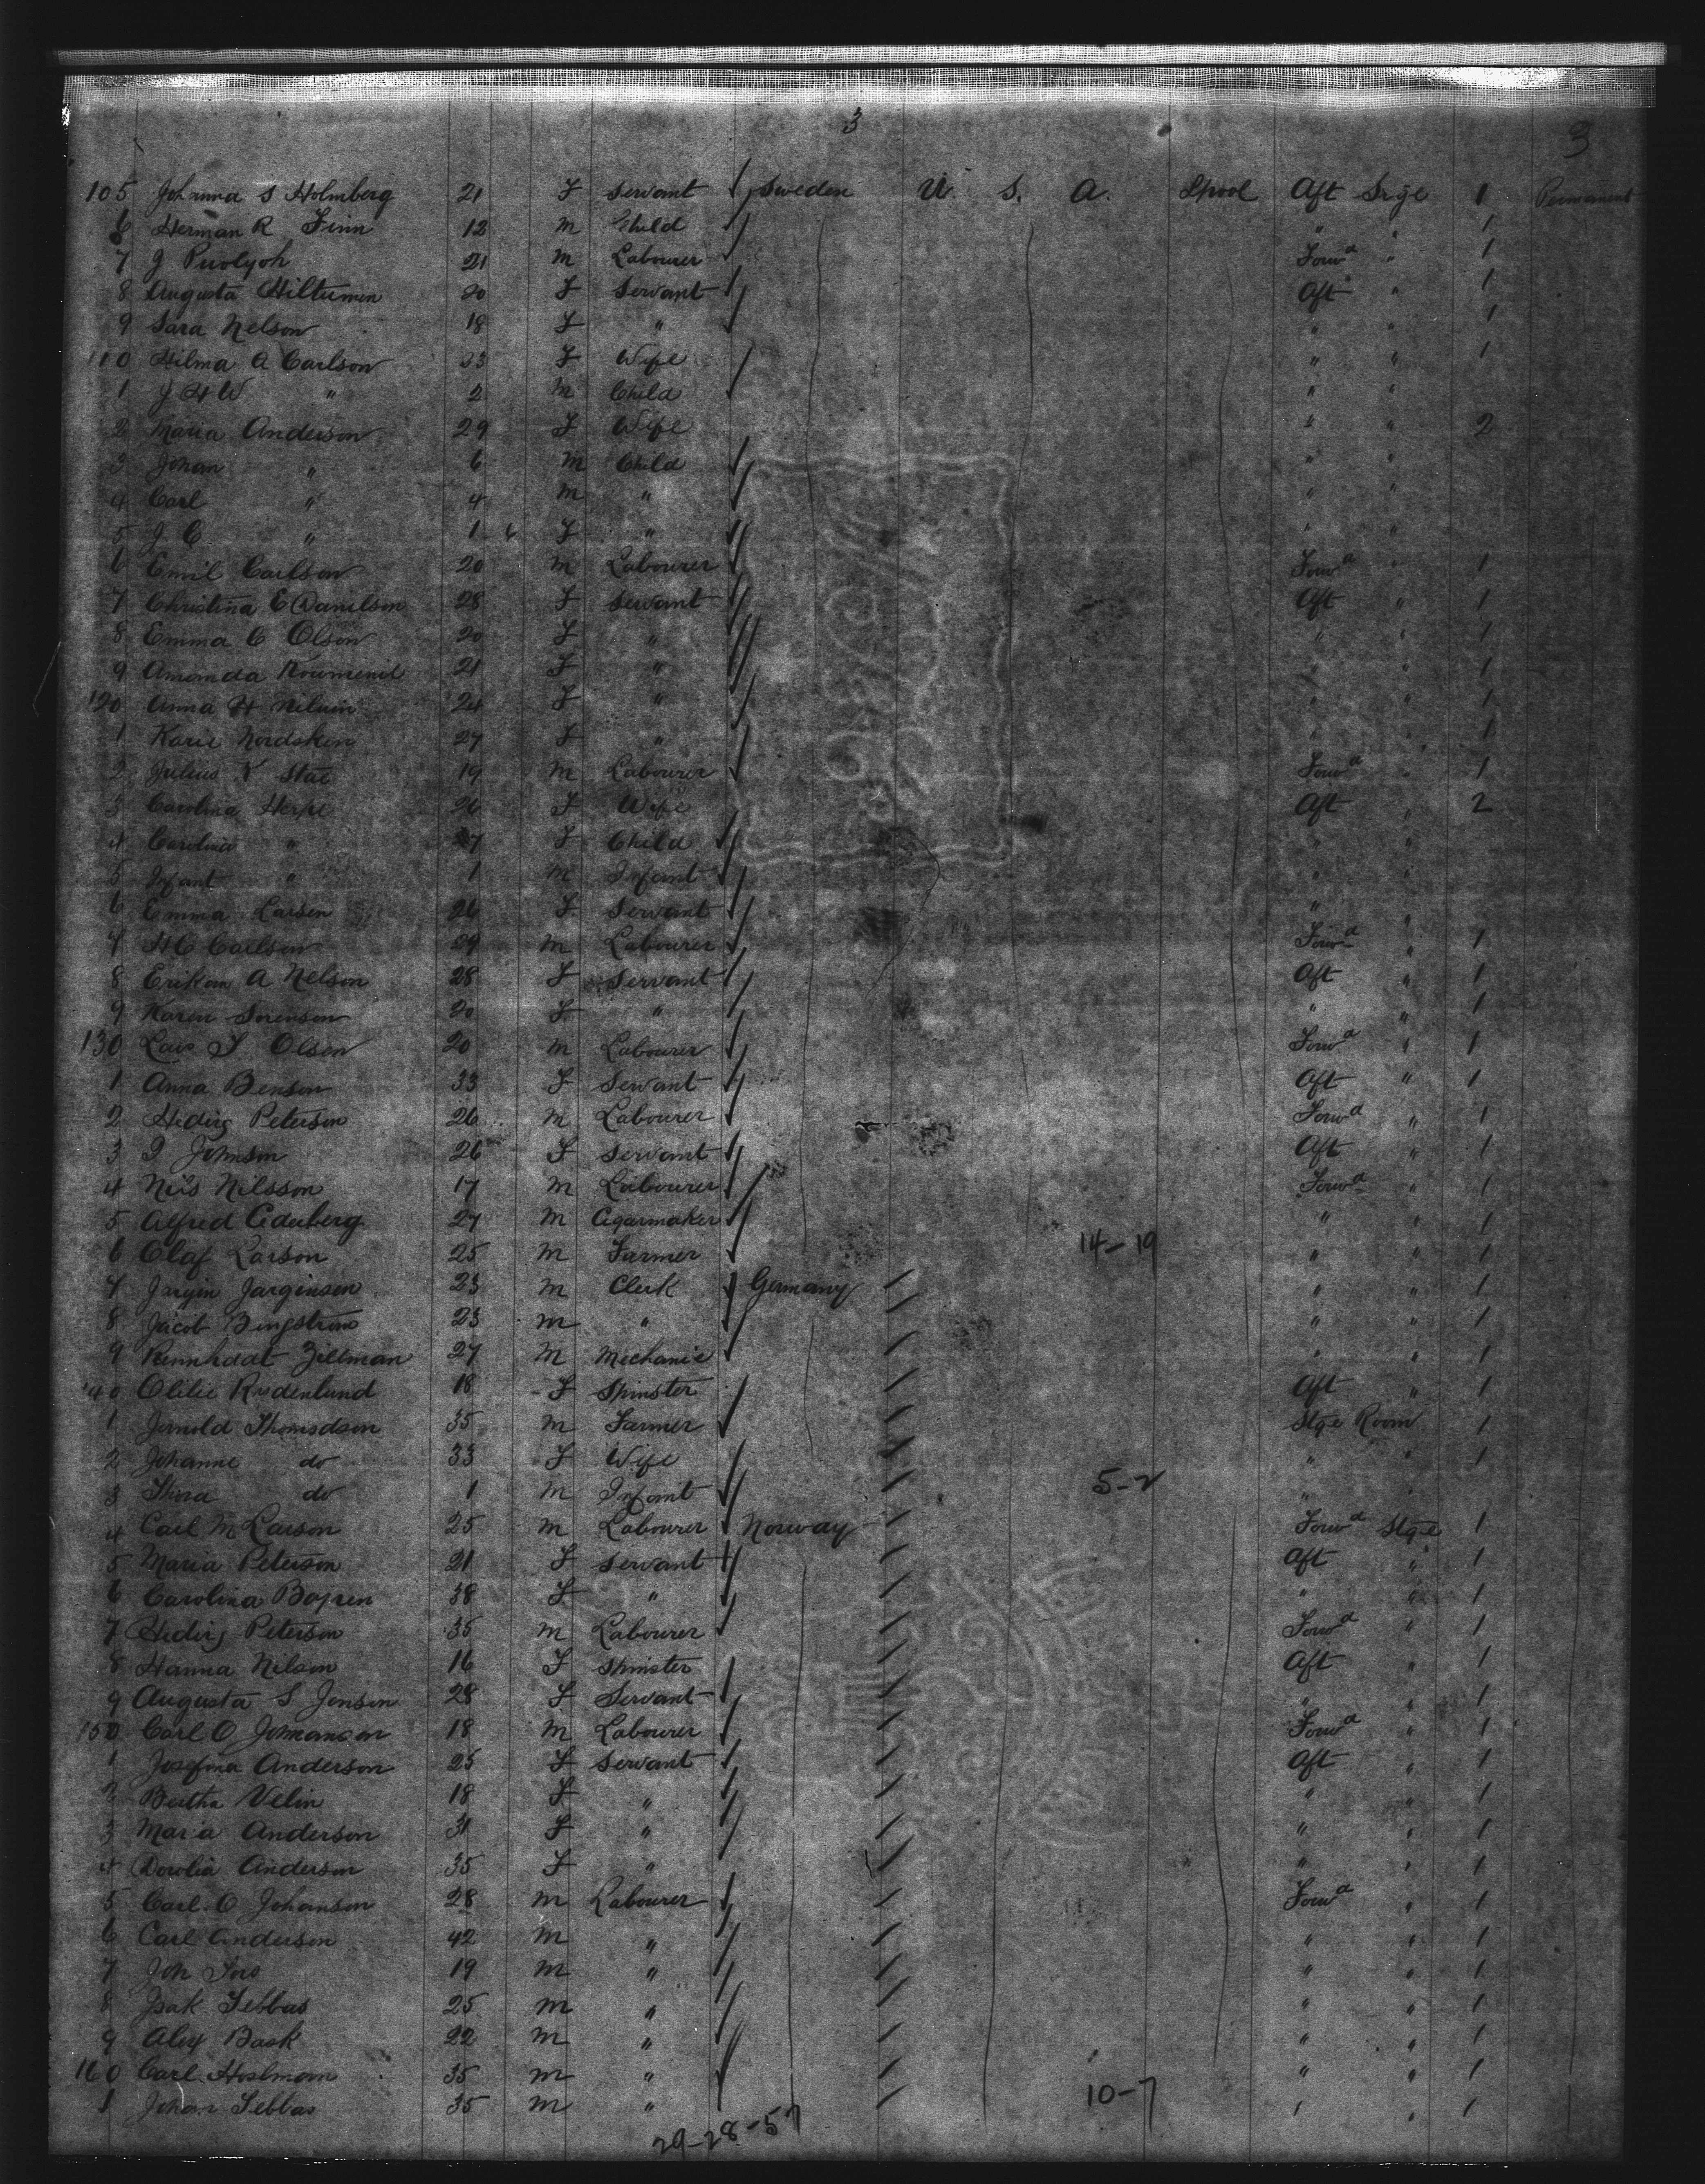 3 3
105 Johanna S Holmberg 21 F Servant Sweden U. S. A. Lpool Aft Srge 1 Permanent
6 Herman R Finn 12 M Child " " 1
7 J 21 M Labourer Forwd " 1
8 Augusta 20 F Servant Aft " 1
9 Sara Nelson 18 F " " " 1
110 Hilma A Carlson 23 F Wife " " 1
1 J H W " 2 M Child " "
2 Maria Anderson 29 F Wife " " 2
3 Johan " 6 M Child " "
4 Carl " 4 M " " "
5 J. C " 1 6 F " " "
6 Emil Carlson 20 M Labourer Forwd " 1
7 Christina E Danilson 28 F Servant Aft " 1
8 Emma C Olson 20 F " " " 1
9 Amanda 21 F " " " 1
120 Anna H 24 F " " " 1
1 Karie Nordsken 27 F " " " 1
2 Julius 19 M Labourer Forwd " 1
3 Carolina 26 F Wife Aft " 2
4 Carolina " 7 F Child " "
5 Infant " 1 M Infant " "
6 Emma Larsen 26 F Servant " "
7 H C Carlson 29 M Labourer Forwd " 1
8 A Nelson 28 F Servant Aft " 1
9 Karen Sorenson 20 F " " " 1
130 Lars Olson 20 M Labourer Forwd " 1
1 Anna Benson 33 F Servant Aft " 1
2 Hedvig Peterson 26 M Labourer Forwd " 1
3 Johnson 26 F Servant Aft " 1
4 Nils Nilsson 17 M Labourer Forwd " 1
5 Alfred 27 M Cigarmaker " " 1
14-19
6 Olaf Larson 25 M Farmer " " 1
7 Jargensen 23 M Clerk Germany " " 1
8 Jacob 23 M " " " 1
9 Zillman 27 M Mechanic " " 1
140 Rudenlund 18 F Spinster Aft " 1
1 Thomsdson 35 M Farmer Stge Room 1
2 Johanne do 33 F Wife " " 1
3 Thora do 1 M Infant 5-2 " "
4 Carl M Larson 25 M Labourer Norway Forwd Stge 1
5 Maria Peterson 21 F Servant Aft " 1
6 Carolina 38 F " " " 1
7 Hedvig Peterson 35 M Labourer Forwd " 1
8 Hanna Nilson 16 F Spinster Aft " 1
9 Augusta S Jonson 28 F Servant " " 1
150 Carl O 18 M Labourer Forwd " 1
1 Josefina Anderson 25 F Servant Aft " 1
2 Bertha Velin 18 F " " " 1
3 Maria Anderson 31 F " " " 1
4 Anderson 35 F " " " 1
5 Carl O Johanson 28 M Labourer Forwd " 1
6 Carl Anderson 42 M " " " 1
7 Joh 19 M " " " 1
8 Isak 25 M " " " 1
9 Alex Back 22 M " " " 1
160 Carl 35 M " " " 1
1 Johan 35 M " 10-7 " " 1
29-28-57